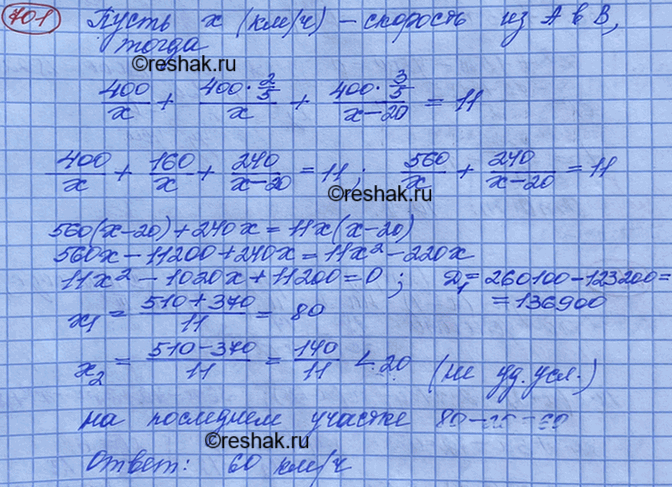 701 Пусть x (км/ч) – скорость из А в В,
тогда
©reshak.ru
400/x + (400·2/5)/x + (400·3/5)/(x–20) = 11
400/x + 160/x + 240/(x–20) = 11 ; 560/x + 240/(x–20) = 11
©reshak.ru
560(x–20)+240x=11x(x–20)
560x–11200+240x=11x²–220x
11x²–1020x+11200=0 ; D₁=260100–123200=
=136900
x₁ = (510+370)/11 = 80
x₂ = (510–370)/11 = 140/11 <20 (не уд. усл.)
на последнем участке 80–20=60
©reshak.ru
Ответ: 60 км/ч